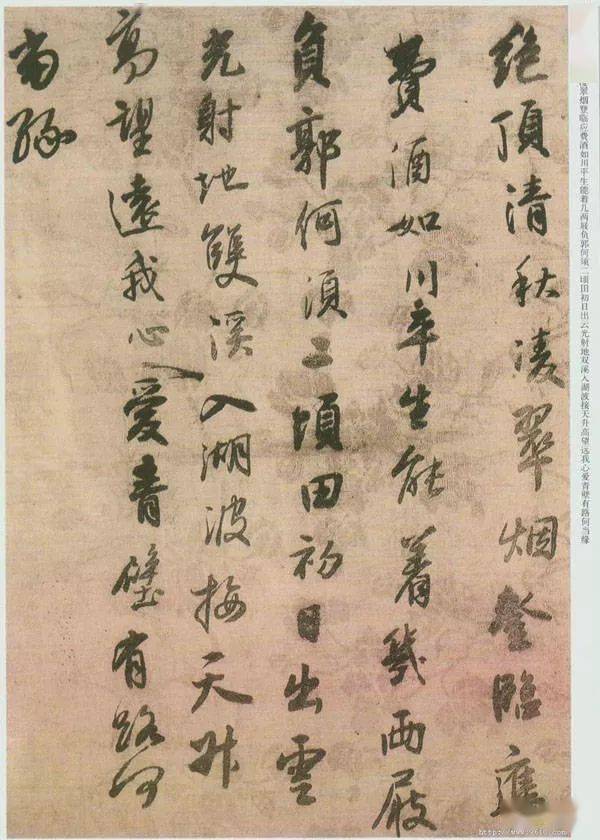 绝頂清秋凌翠烟登臨應
費酒如川平生能著幾兩屐
負郭何須二頃田初日出雲
光射地雙溪入湖波接天升
高望遠我心愛青壁有路何
當緣
翠烟登临应费酒如川平生能着几两屐负郭何须二顷田初日出云光射地双溪入湖波接天升高望远我心爱青壁有路何当缘